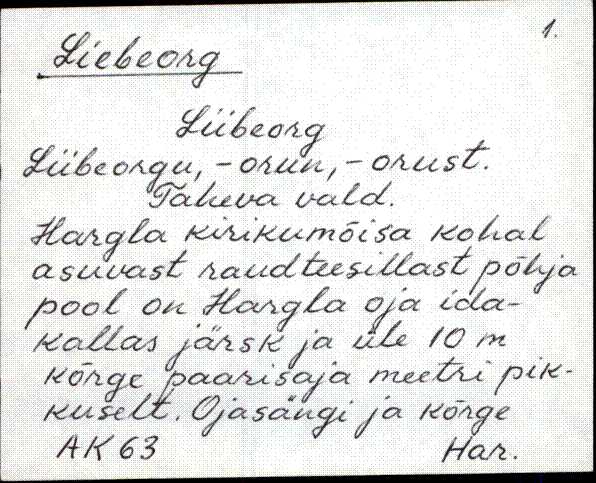 1.
Liebeorg
Liibeorg
Liibeorgu, -orun, -orust.
Taheva vald.
Hargla kirikumõisa kohal
asuvast raudteesillast põhja
pool on Hargla oja ida-
kallas järsk ja üle 10 m
kõrge paarisaja meetri pik-
kuselt. Ojasängi ja kõrge
AK 63 Har.